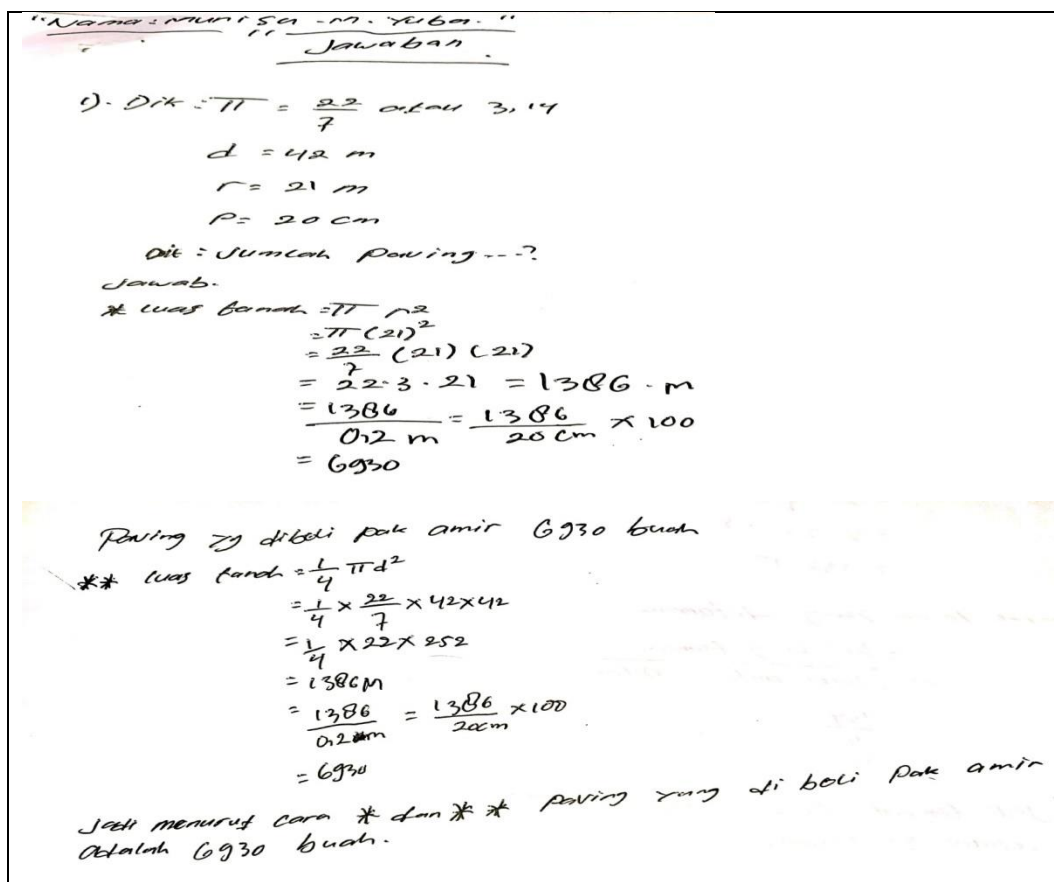 "Nama : Munisa - M. Yuba."
Jawaban
1). Dik : π = 22/7 atau 3,14
d = 42 m
r = 21 m
P = 20 cm
Dit : Jumlah Paving ...?
Jawab.
* Luas tanah = π r²
= π (21)²
= 22/7 (21) (21)
= 22·3·21 = 1386 · m
= 1386/0,2 m = 1386/20 cm × 100
= 6930
Paving yg dibeli pak amir 6930 buah
** luas tanah = 1/4 πd²
= 1/4 × 22/7 × 42×42
= 1/4 × 22 × 252
= 1386 M
= 1386/0,2 m = 1386/20cm ×100
= 6930
Jadi menurut cara * dan ** Paving yang di beli Pak amir
adalah 6930 buah.